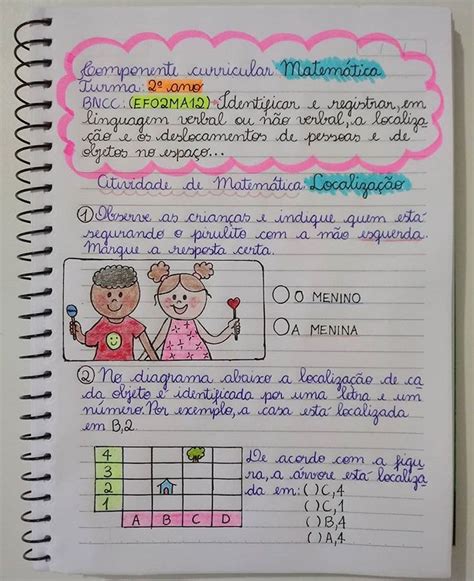 Componente curricular: Matemática
Turma: 2º ano
BNCC: (EF02MA12) Identificar e registrar, em
linguagem verbal ou não verbal, a localiza-
ção e os deslocamentos de pessoas e de
objetos no espaço...
Atividade de Matemática: Localização
1 Observe as crianças e indique quem está
segurando o pirulito com a mão esquerda.
Marque a resposta certa.
O MENINO
A MENINA
2 No diagrama abaixo a localização de ca-
da objeto é identificada por uma letra e um
número. Por exemplo, a casa está localizada
em B,2.
4
3
2
1
A B C D
De acordo com a figu-
ra, a árvore está localiza-
da em: ( ) C,4
( ) C,1
( ) B,4
( ) A,4